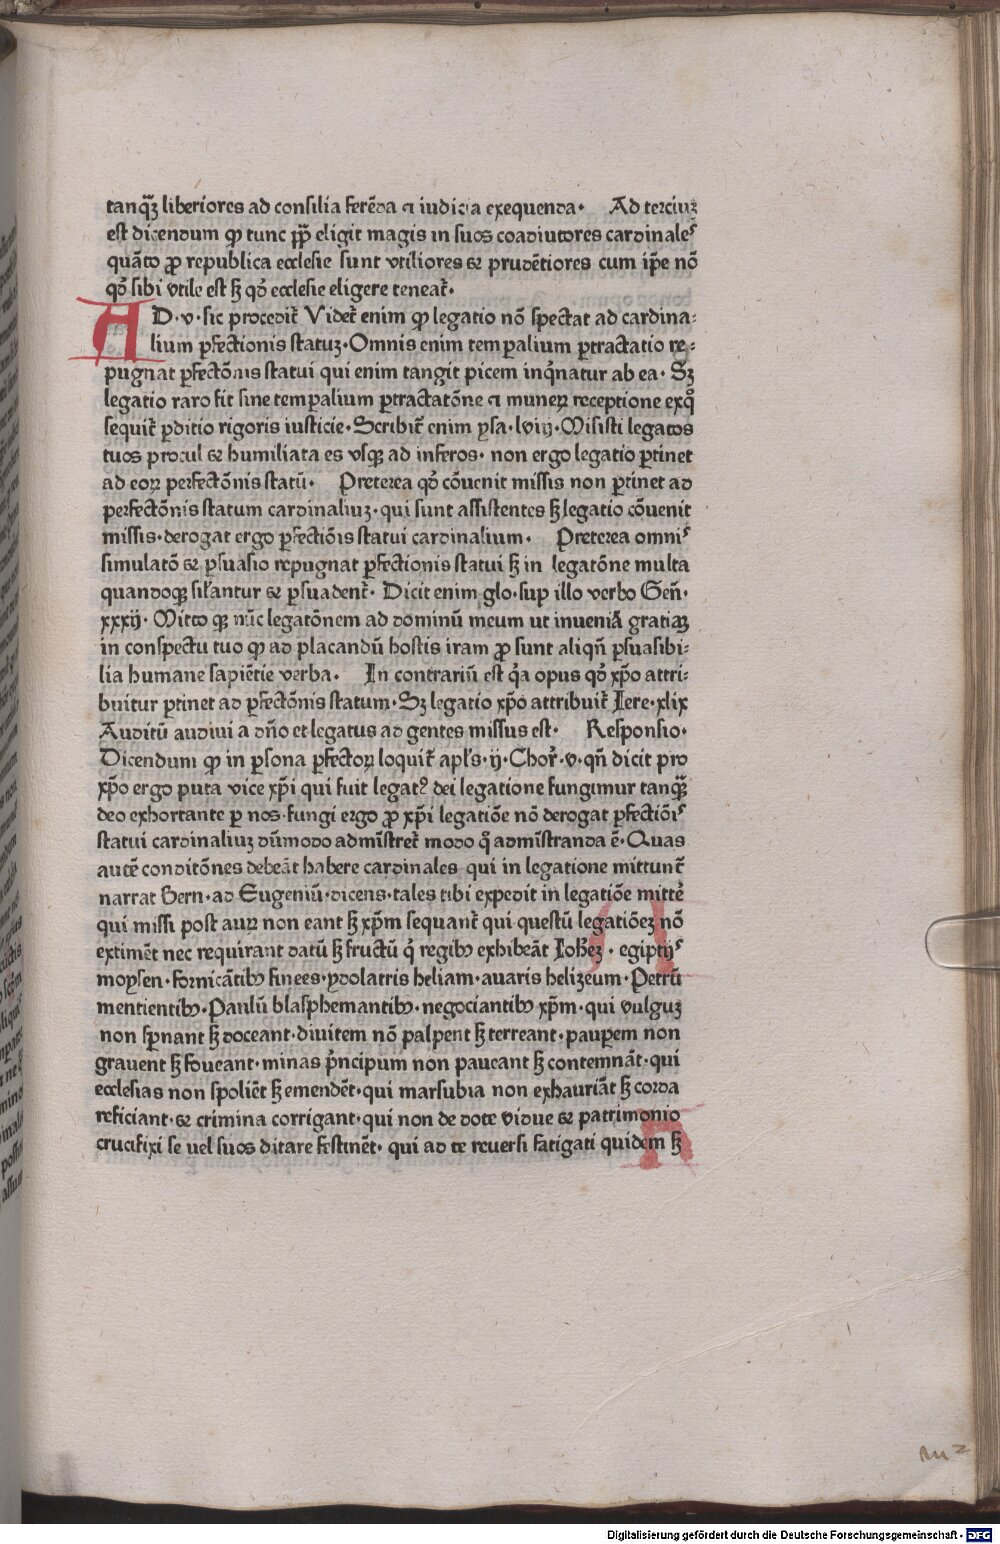 tanqꝫ liberiores ad consilia ferēda ⁊ iudicia exequenda· Ad terciuꝫ
est dicendum ꝙ tunc pp̄ eligit magis in suos coadiutores cardinaleˢ
quāto ꝓ republica ecclesie sunt vtiliores & prudētiores cum ip̄e nō
qđ sibi vtile est sꝫ qđ ecclesie eligere teneat᷑·
AD·v·sic procedit᷑ Videt᷑ enim ꝙ legatio nō spectat ad cardina⸗
lium ꝑfectionis statuꝫ·Omnis enim temꝑalium ꝑtractatio re⸗
pugnat ꝑfectōnis statui qui enim tangit picem inqͥnatur ab ea· Sꝫ
legatio raro fit sine temꝑalium ꝑtractatōne ⁊ muneꝝ receptione exqͦ
sequit᷑ ꝑditio rigoris iusticie·Scribit᷑ enim ysa·lviij·Misisti legatos
tuos procul & humiliata es vsqꝫ ad inferos· non ergo legatio ꝑtinet
ad eoꝝ perfectōnis statū· Preterea qđ cōuenit missis non ꝑtinet ad
perfectōnis statum cardinaliuꝫ·qui sunt assistentes sꝫ legatio cōuenit
missis·derogat ergo ꝑfectiōis statui cardinalium· Preterea omniˢ
simulatō & ꝑsuasio repugnat ꝑfectionis statui sꝫ in legatōne multa
quandoqꝫ sil̄antur & ꝑsuadent᷑· Dicit enim glo·suꝑ illo verbo Geñ·
xxxij· Mitto qꝫ nūc legatōnem ad dominū meum ut inueniā gratiaꝫ
in conspectu tuo ꝙ ad placandū hostis iram ꝓ sunt aliqñ ꝑsuasibi⸗
lia humane sapiētie verba· In contrariū est qͣ opus qđ xp̄o attri⸗
buitur ꝑtinet ad ꝑfectōnis statum·Sꝫ legatio xp̄o attribuit᷑ Iere·xlix
Auditū audiui a dño et legatus ad gentes missus est· Responsio·
Dicendum ꝙ in ꝑsona ꝑfectoꝝ loquit᷑ apl̄s·ij·Chor̄·v·qñ dicit pro
xp̄o ergo puta vice xp̄i qui fuit legatꝰ dei legatione fungimur tanqꝫ
deo exhortante ꝑ nos·fungi ergo ꝓ xp̄i legatiōe nō derogat ꝑfectiōiˢ
statui cardinaliuꝫ dūmodo admīstret᷑ modo qͦ admīstranda ē·Quas
autē conditōnes debeāt habere cardinales qui in legatione mittunt᷑
narrat Bern·ad Eugeniū·dicens·tales tibi expedit in legatiōe mitte᷑
qui missi post auꝝ non eant sꝫ xp̄m sequant᷑ qui questū legatiōeꝫ nō
extimēt nec requirant datū sꝫ fructū qͥ regibꝰ exhibeāt Ioheꝫ· egiptijˢ
moysen·fornicātibꝰ finees·ydolatris heliam·auaris helizeum·Petrū
mentientibꝰ·Paulū blasphemantibꝰ·negociantibꝰ xp̄m·qui vulguꝫ
non spernant sꝫ doceant·diuitem nō palpent sꝫ terreant·pauꝑem non
grauent sꝫ foueant·minas pͥncipum non paueant sꝫ contemnāt·qui
ecclesias non spoliēt sꝫ emendēt·qui marsubia non exhauriāt sꝫ corda
reficiant·& crimina corrigant·qui non de dote vidue & patrimonio
crucifixi se uel suos ditare festinēt· qui ad te reuersi fatigati quidem sꝫ
Digitalisierung gefördert durch die Deutsche Forschungsgemeinschaft - DFG